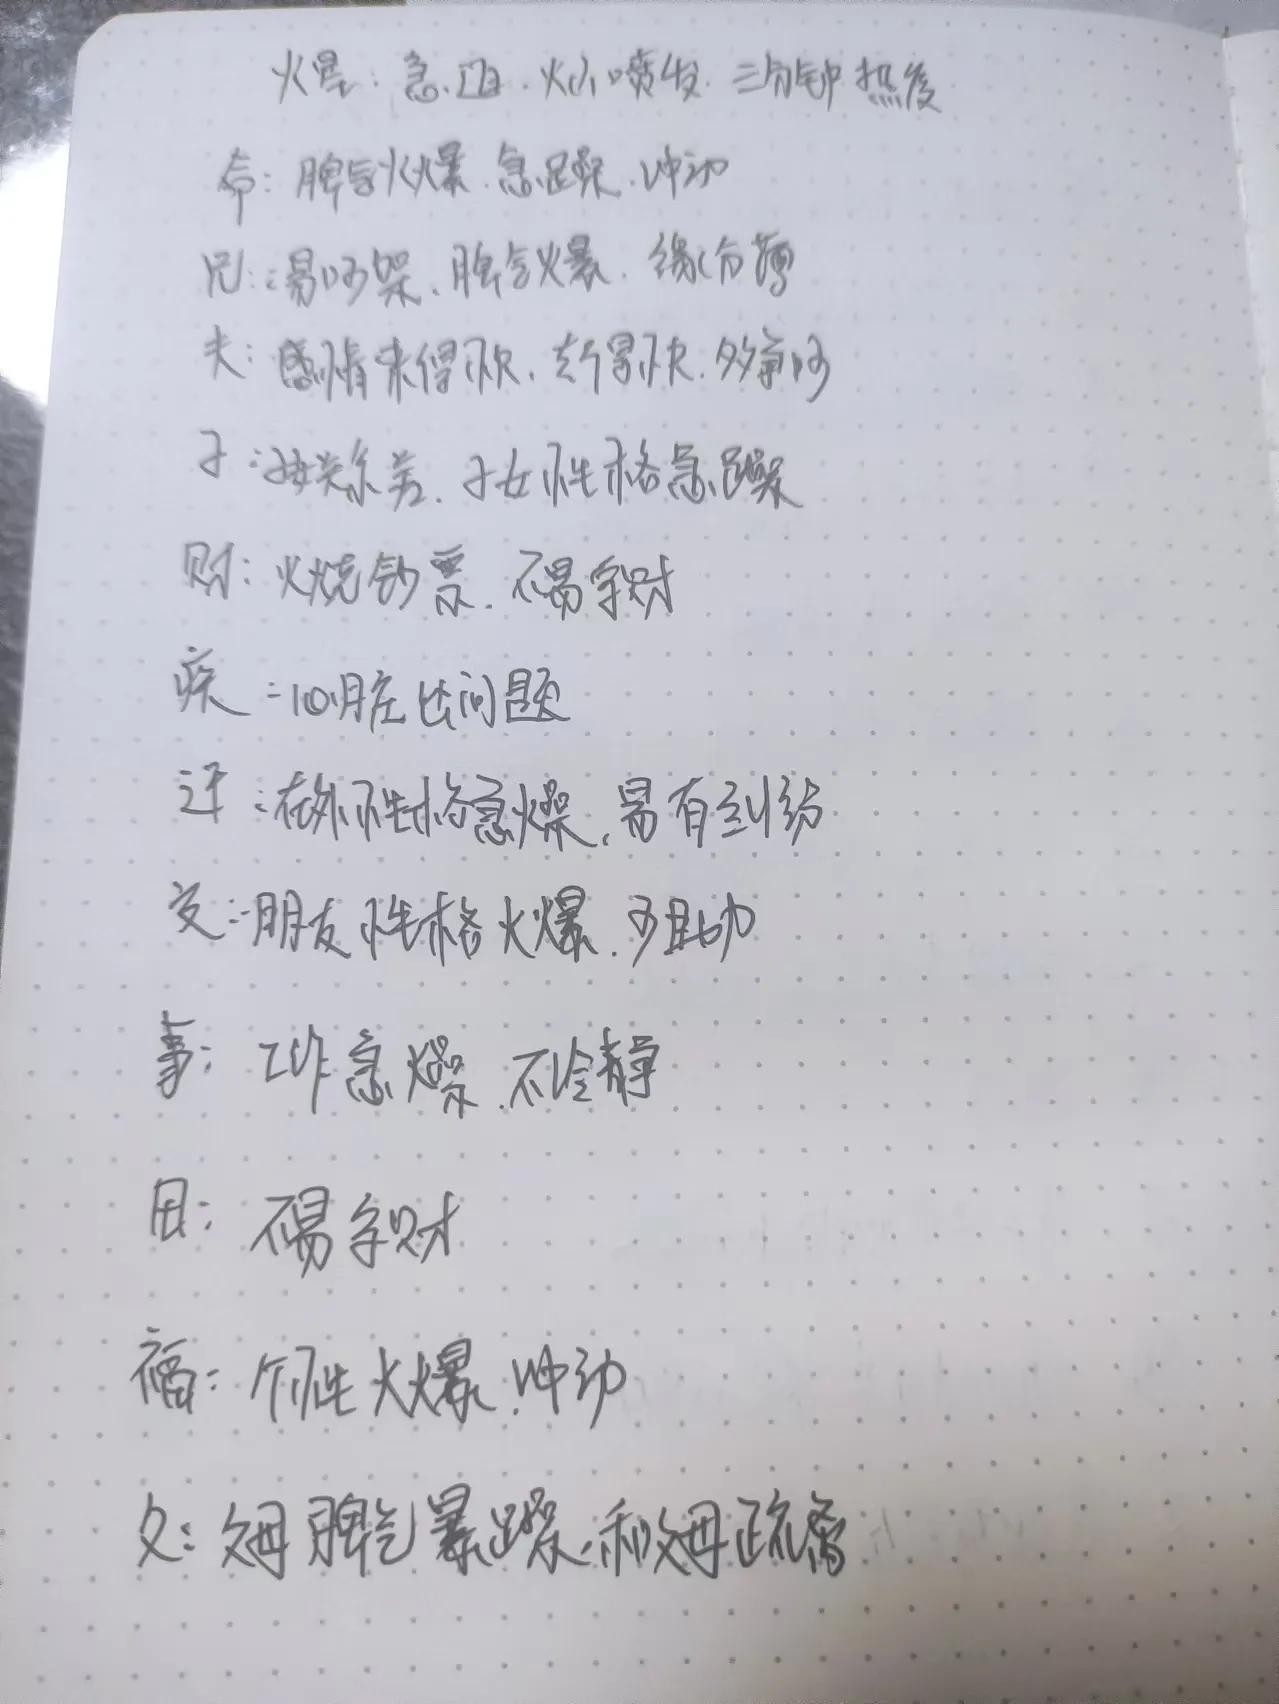 火星：急、凶、火山喷发、三分钟热度
命：脾气火爆、急躁、冲动
兄：易吵架、脾气火暴、缘分薄
夫：感情来得快、去得快、多争吵
子：子女关系差、子女性格急躁
财：火烧钞票、不易守财
疾：心脏出问题
迁：在外性格急燥、易有纠纷
交：朋友性格火爆、少助力
事：工作急燥、不冷静
田：不易守财
福：个性火爆、冲动
父：父母脾气暴躁、和父母疏离